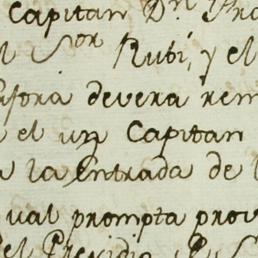 Capitan Dn
Sor Rubi, y el
devera rem
el un Capitan
a la Entrada de l
ual prompta prov
el Presidio